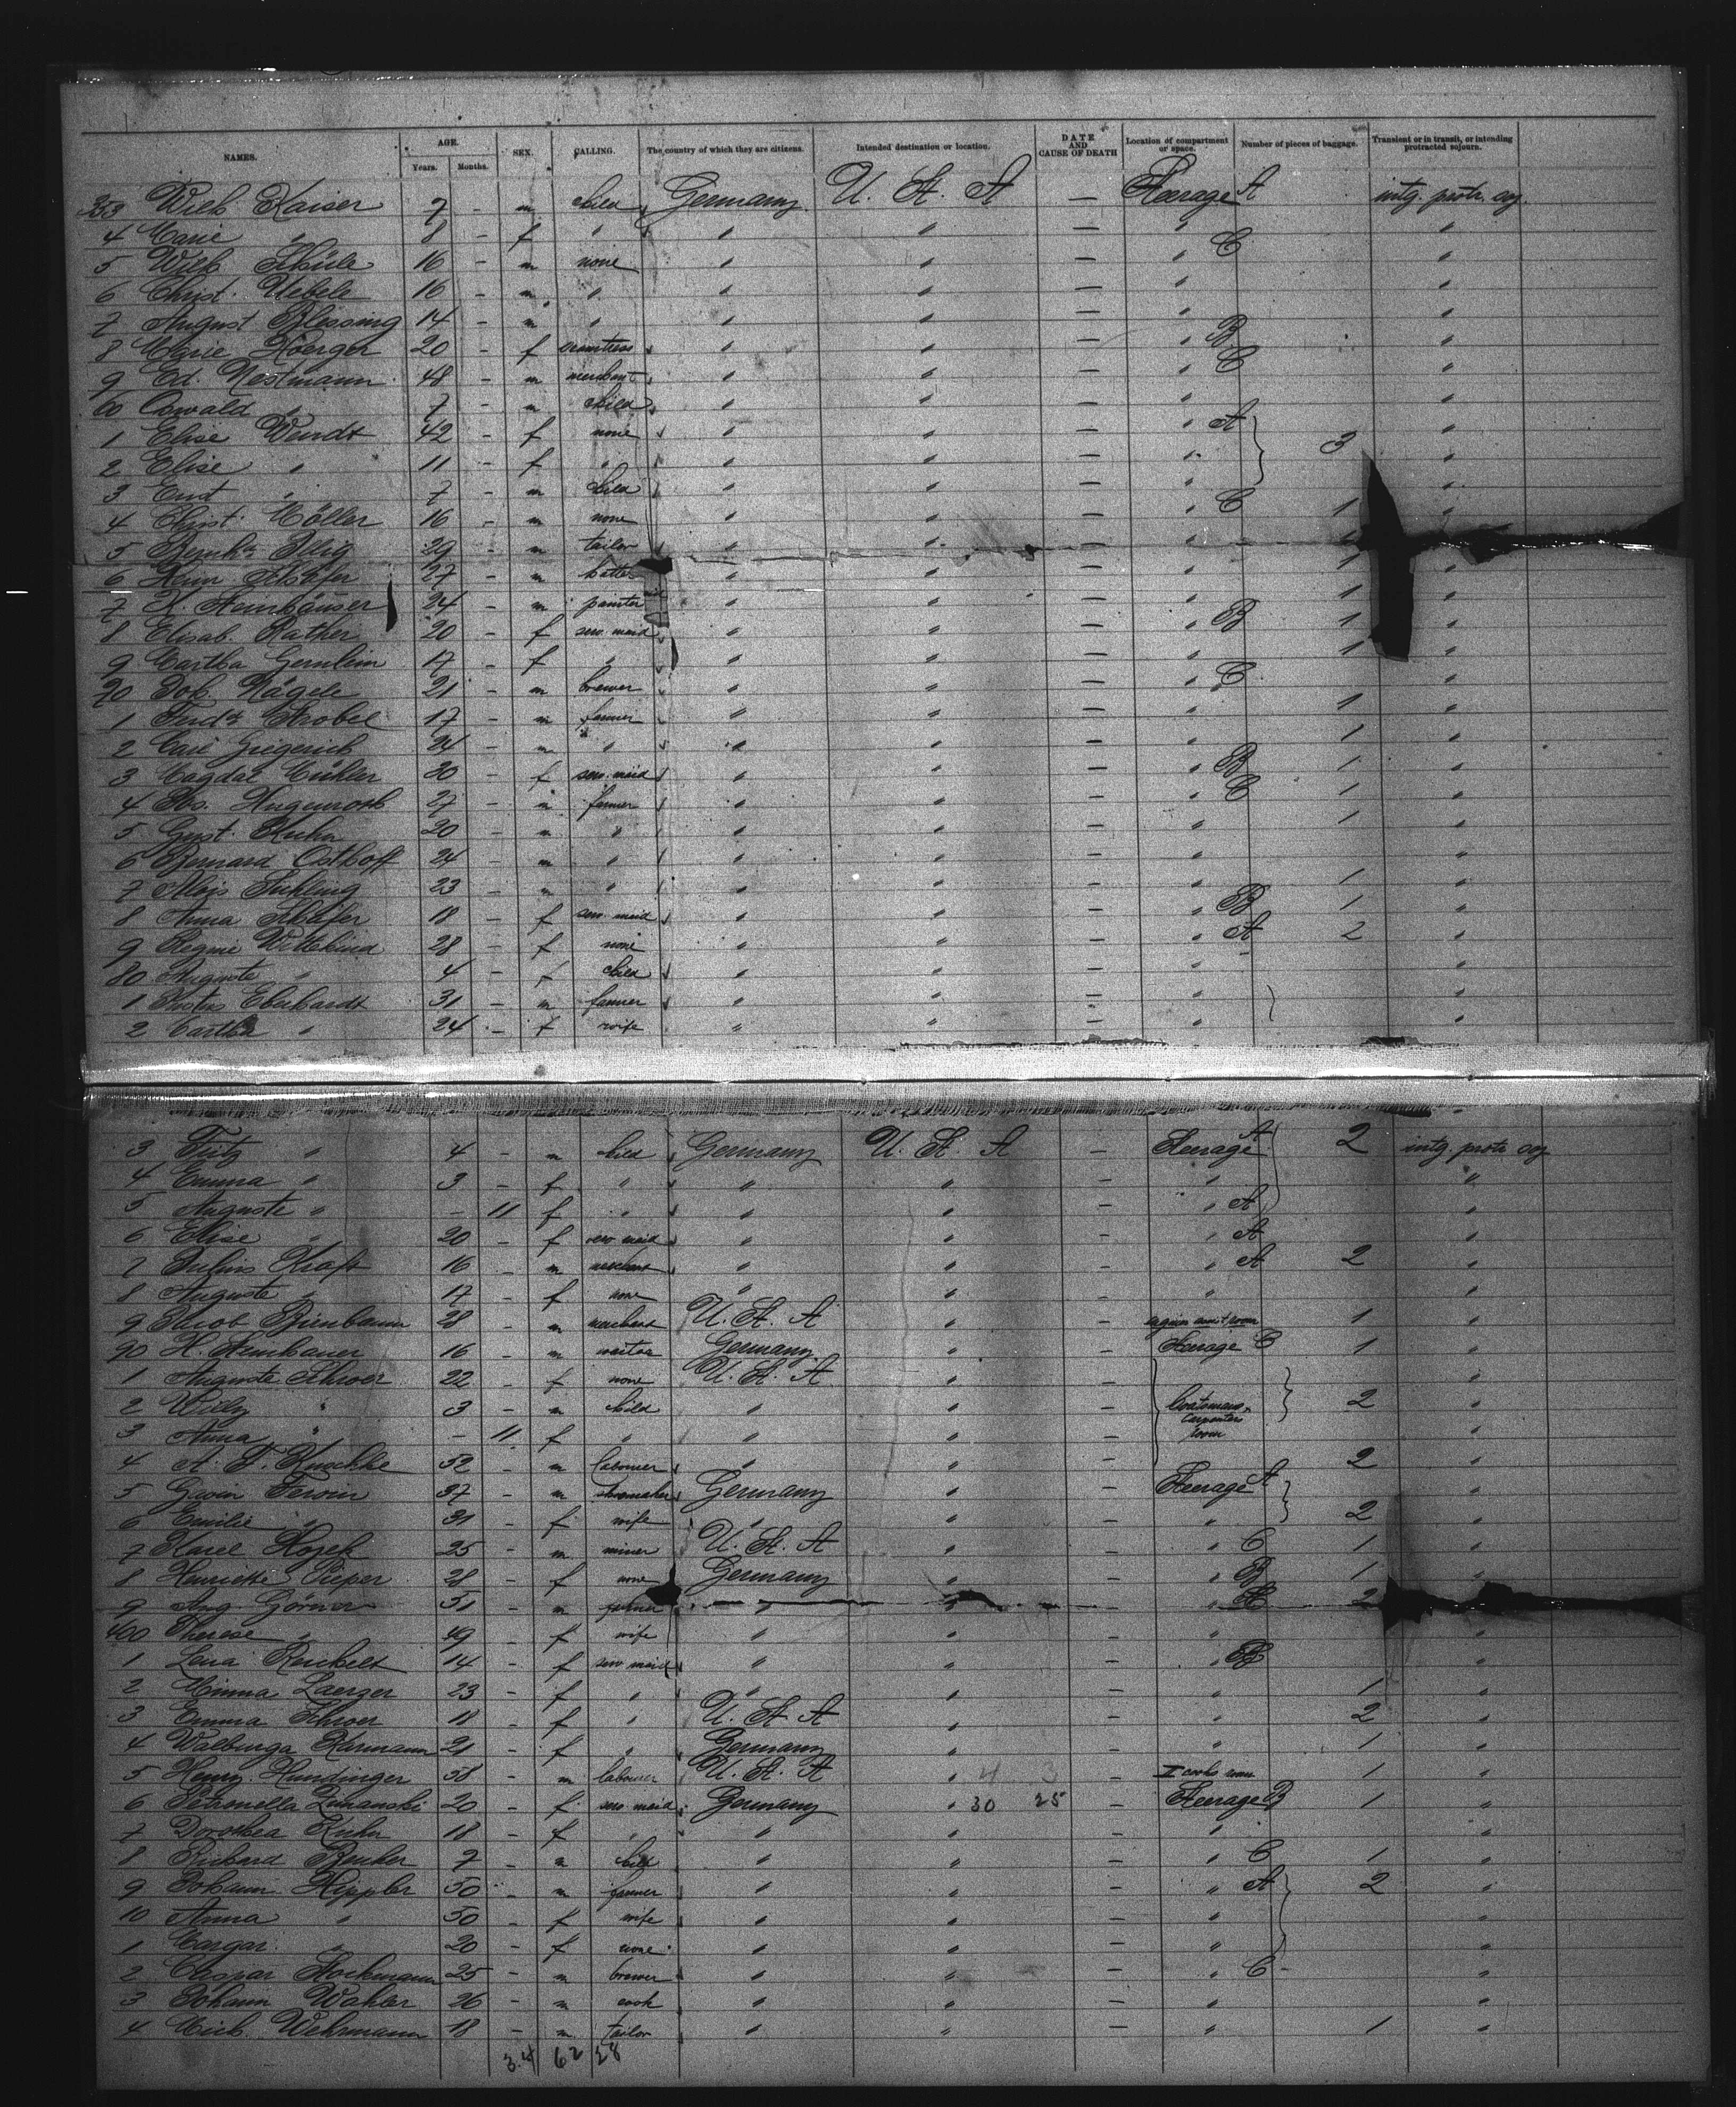 NAMES. AGE. Years. Months. SEX. CALLING. The country of which they are citizens. Intended destination or location. DATE AND CAUSE OF DEATH Location of compartment or space. Number of pieces of baggage. Transient or in transit, or intending protracted sojourn.
353 Wilh. Kaiser 7 - m child Germany U. S. A — Steerage A intg. protr. soj.
4 Marie " 8 - f " " " — " "
5 Wilh. Schüle 16 - m none " " — " C "
6 Christ. Uebele 16 - m " " " — " "
7 August Blessing 14 - m " " " — " "
8 Marie Hoerger 20 - f " " — " B "
9 Ed. Nestmann 48 - m merchant " " — " C "
60 Oswald " 7 - m child " " — " "
1 Elise Wendt 42 - f none " " — " A 3 "
2 Elise " 11 - f " " " — " "
3 Ernst " 7 - m child " " — " "
4 Christ. Möller 16 - m none " " — " C 1 "
5 Bernhd Illig 29 - m tailor " " — "
6 Henr. Schäfer 27 - m " " — " 1 "
7 K. Hemhäuser 24 - m painter " " — " 1 "
8 Elisab. Rather 20 - f serv. maid " " — " B 1 "
9 Martha Gernlein 17 - f " " " — " 1 "
70 Joh. Nägele 21 - m brewer " " — " C "
1 Ferdd Strobel 17 - m farmer " " — " 1 "
2 Carl Giegerich 24 - m " " " — " 1 "
3 Magdal. Mühler 20 - f serv. maid " " — " B 1 "
4 Hugenroth 27 - m farmer " " — " C 1 "
5 Gust. Kuhn 20 - m " " " — " 1 "
6 Bernard Osthoff 24 - m " " " — " "
7 Alois Suhling 23 - m " " " — " 1 "
8 Anna Schäfer 18 - f serv. maid " " — " B 1 "
9 Regine Wittekind 28 - f none " " — " A 2 "
80 Auguste " 4 - f child " " — " "
1 Eberhardt 31 - m farmer " " — " "
2 Martha " 24 - f wife " " — " "
3 Fritz " 4 - m child Germany U. S. A — Steerage A 2 intg. protr. soj
4 Emma " 3 - f " " " — " "
5 Auguste " - 11 f " " " — " A "
6 Elise " 20 - f serv maid " " — " A "
7 Julius Kraft 16 - m merchant " " — " A 2 "
8 Auguste " 17 - f none " " — " "
9 Jacob Birnbaum 28 - m merchant U. S. A " — 1 "
90 H. Hembauer 16 - m waiter Germany " — Steerage C 1 "
1 Auguste Schroer 22 - f none U. S. A " — "
2 Willy " 3 - m child " " — boatsmans & carpenters room 2 "
3 Anna " - 11 f " " " — "
4 A. F. Kuschke 52 - m labourer " " — 2 "
5 Gwin Ferwin 37 - m shoemaker Germany " — Steerage A "
6 Emilie " 31 - f wife " " — " 2 "
7 Karel Hozek 25 - m miner U. S. A " — " C 1 "
8 Henriette Pieper 28 - f none Germany " — " B 1 "
9 Aug. Görner 51 - m farmer " " — " 2 "
400 Therese " 49 - f wife " " — " "
1 Lena Reichelt 14 - f serv maid " " — " B "
2 Minna Laerger 23 - f " " " — " 1 "
3 Emma Schroer 18 - f " U. S. A " — " 2 "
4 Walburga Karmann 21 - f " Germany " — " 1 "
5 Henry Hundinger 38 - m labourer U. S. A " 4 3 — II cooks room 1 "
6 Petronella Zimanski 20 - f serv. maid Germany " 30 25 — Steerage B 1 "
7 Dorothea Kuhn 18 - f " " " — " "
8 Richard Becker 7 - m child " " — " C 1 "
9 Johann Hippler 50 - m farmer " " — " A 2 "
10 Anna " 50 - f wife " " — " "
1 Margar. " 20 - f none " " — " "
2 Caspar Stockmann 25 - m brewer " " — " C - "
3 Johann Wahler 26 - m cook " " — " "
4 Mich. Wehrmann 18 - m tailor " " — " 1 "
3.4 62 58